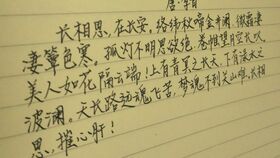 唐·李白
长相思，在长安。络纬秋啼金井阑，微霜凄
凄簟色寒。孤灯不明思欲绝，卷帷望月空长叹，
美人如花隔云端！上有青冥之长天，下有渌水之
波澜。天长路远魂飞苦，梦魂不到关山难。长相
思，摧心肝！